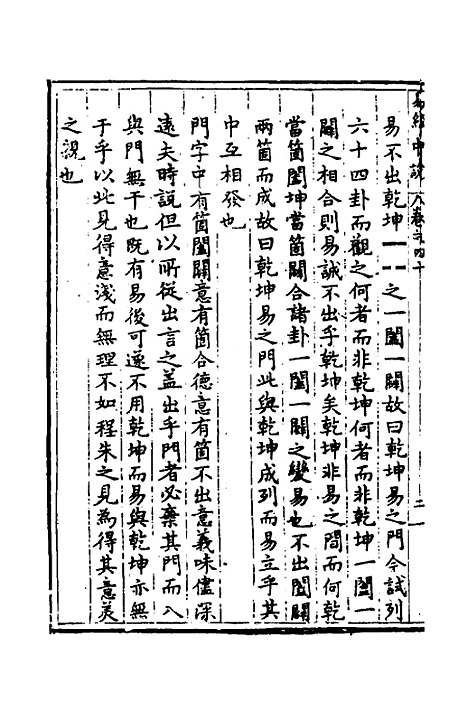 易經中說 卷之四十
二
易不出乾坤⚊⚋之一闔一闢故曰乾坤易之門今試列
六十四卦而觀之何者而非乾坤何者而非乾坤一闔一
闢之相合則易誠不出乎乾坤矣乾坤非易之門而何乾
當箇闔坤當箇闢合諸卦一闔一闢之變易也不出闔闢
兩箇而成故曰乾坤易之門此與乾坤成列而易立乎其
中互相發也
門字中有箇闔闢意有箇合德意有箇不出意義味儘深
遠夫時說但以所從出言之蓋出乎門者必棄其門而入
與門無干也既有易後可遂不用乾坤而易與乾坤亦無
干乎以此見得意淺而無理不如程朱之見為得其意美
之說也